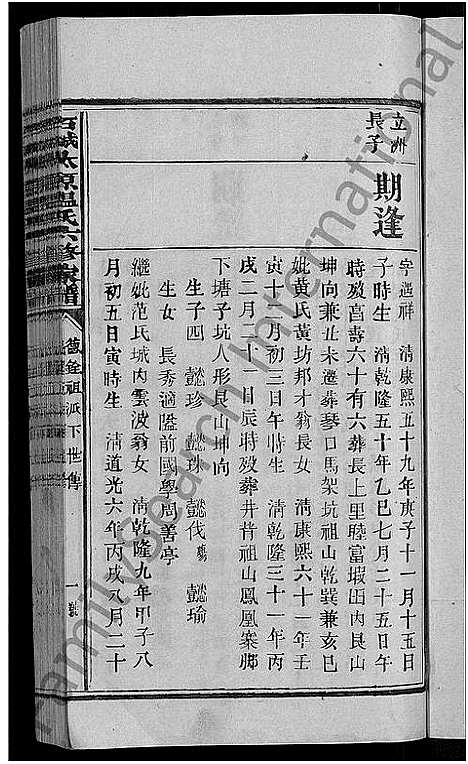 立洲
長子
期逢
字遇祥　清康熙五十九年庚子十一月十五日
子時生　清乾隆五十年乙巳七月二十五日午
時歿享壽六十有六葬長上里睦富塅田內艮山
坤向兼丑未遷葬琴口馬架坑祖山乾巽兼亥巳
妣黃氏黃坊邦才翁長女　清康熙六十一年壬
寅十二月初三日午時生　清乾隆三十一年丙
戌二月二十一日辰時歿葬井背祖山鳳凰案腳
下塘子坑人形艮山坤向
生子四　懿珍　懿珠　懿伐殤　懿瑜
生女　長秀適隘前國學周善亭
繼妣范氏城內雲波翁女　清乾隆九年甲子八
月初五日寅時生　清道光六年丙戌八月二十
石城太原溫氏六修家譜
祖派下世傳
一
Family Search International